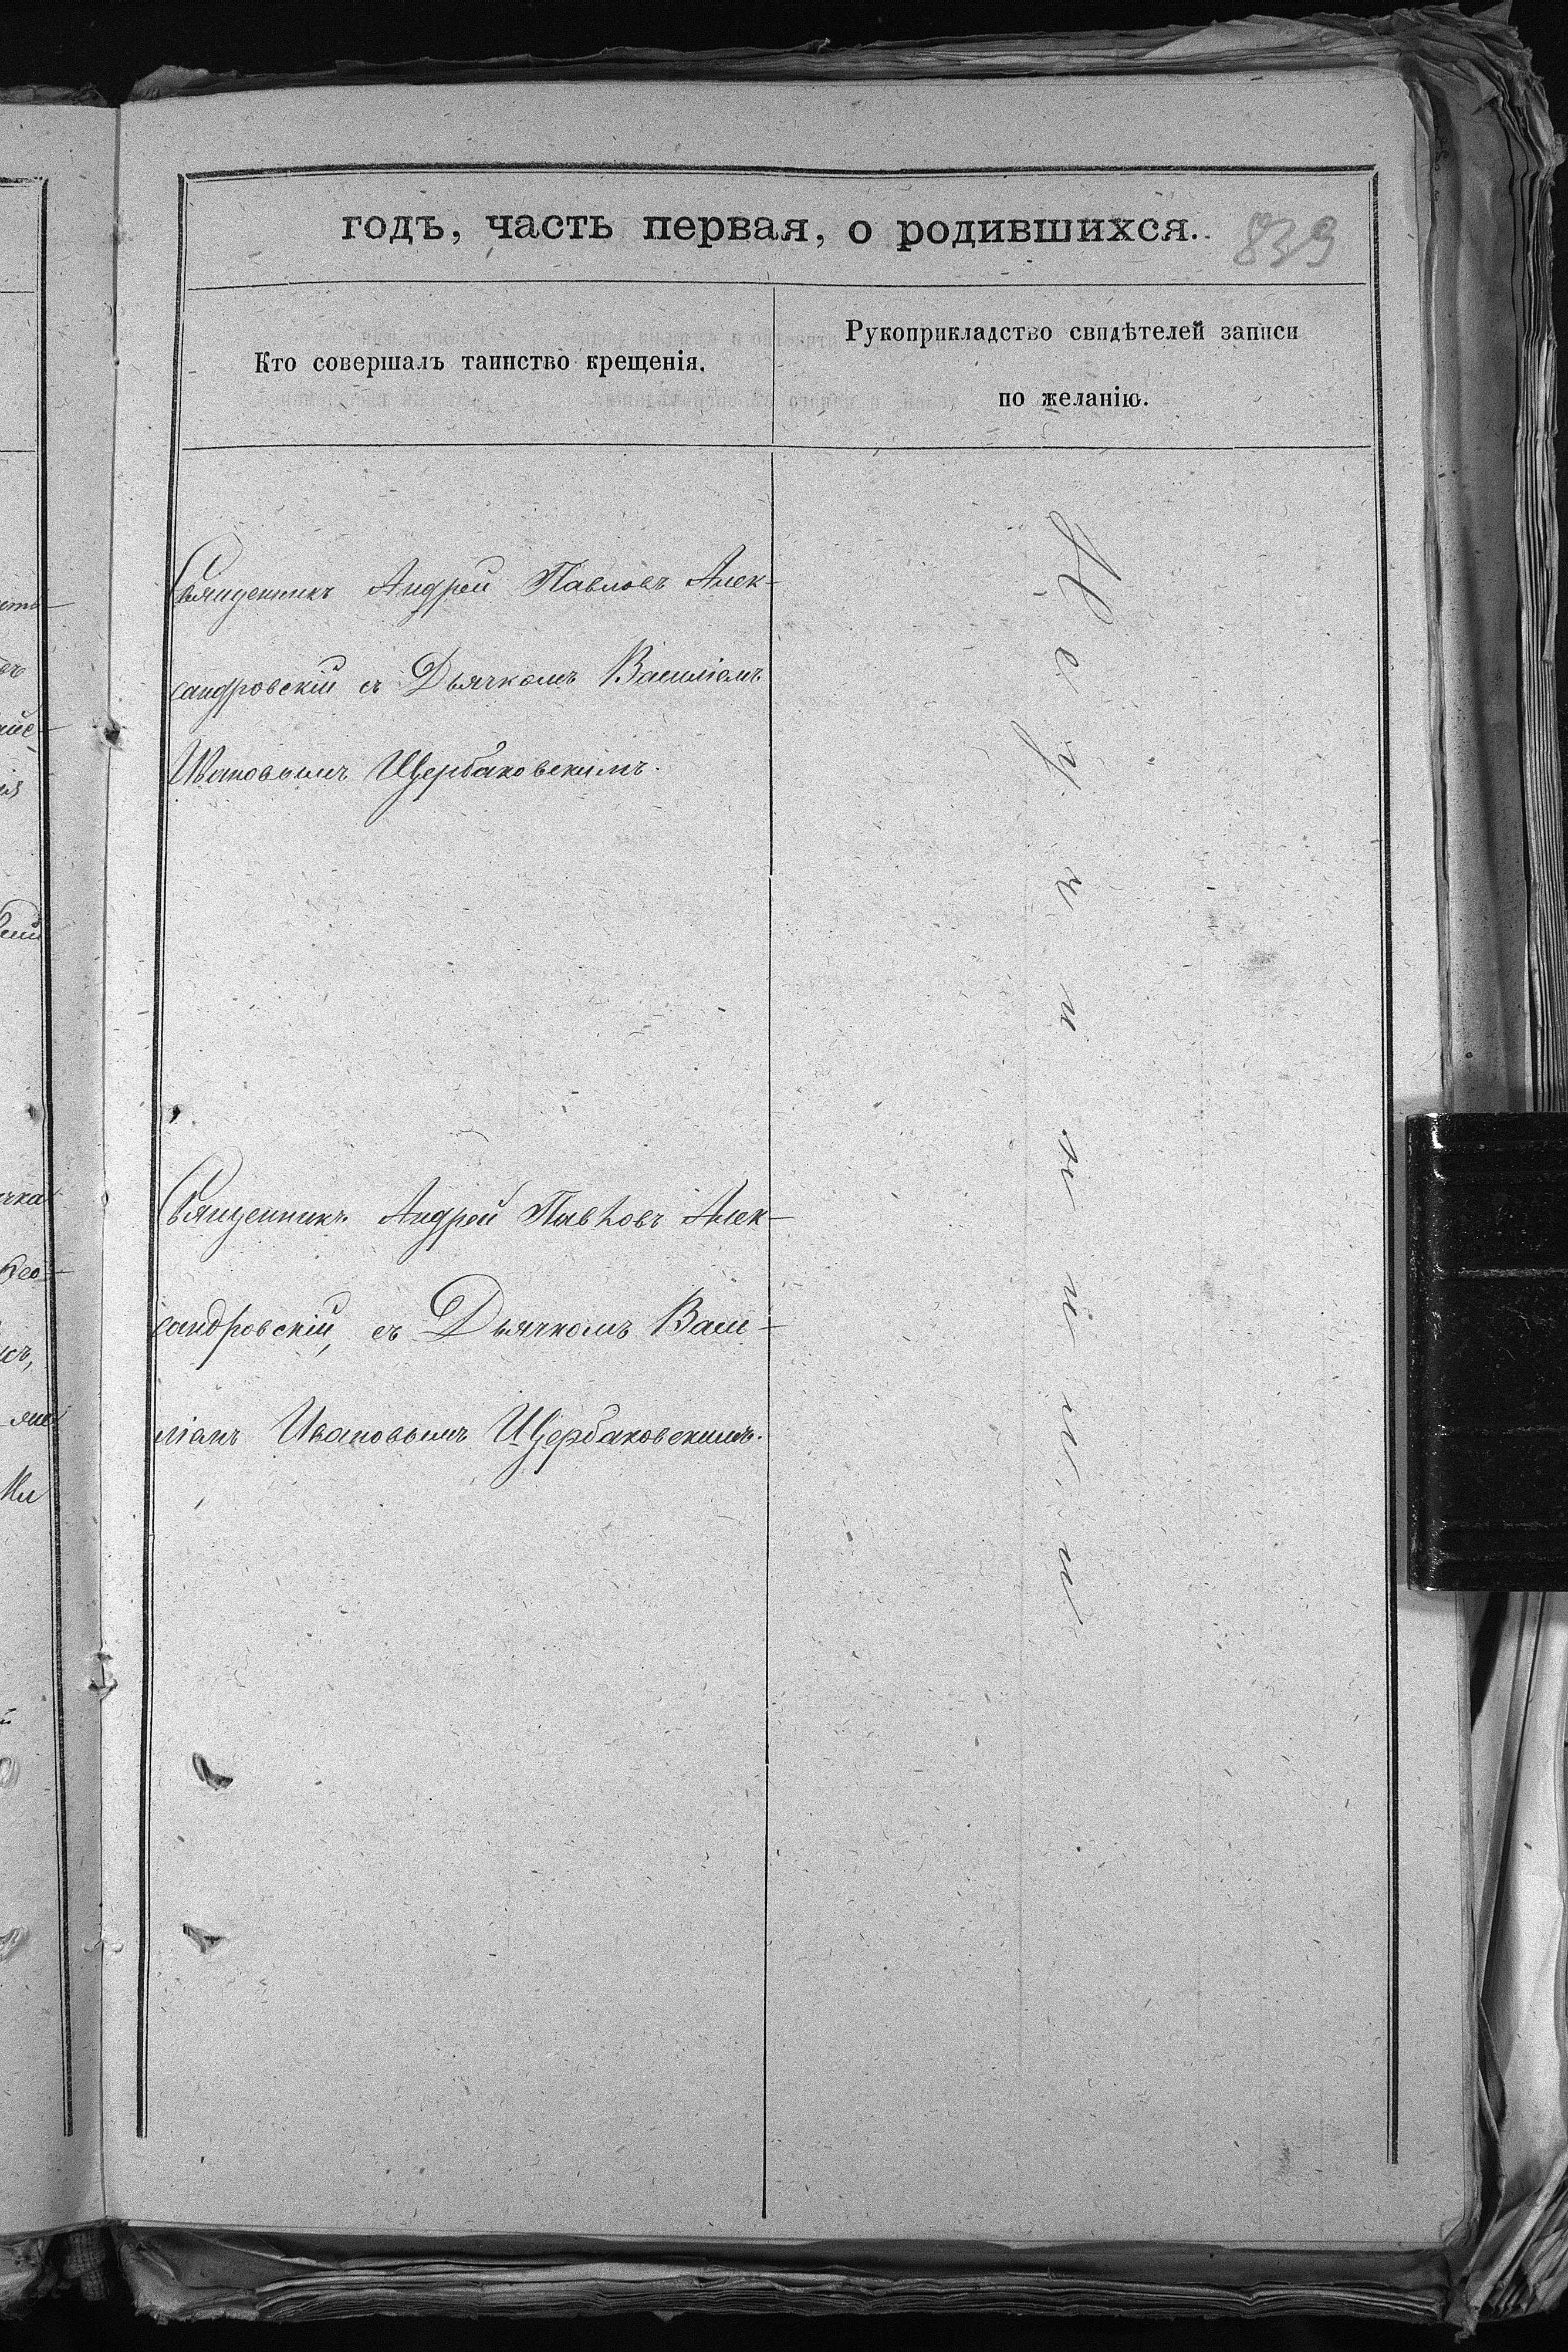 годъ, часть первая, о родившихся.
839
Кто совершалъ таинство крещенія.
Рукоприкладство свидѣтелей записи
по желанію.
Священникъ Андрей Павловъ Алек-
сандровскій съ Дьячкомъ Василіемъ
Ивановымъ Щербаковскимъ.
Священникъ Андрей Павловъ Алек-
сандровскій, съ Дьячкомъ Васи-
ліемъ Ивановымъ Щербаковскимъ.